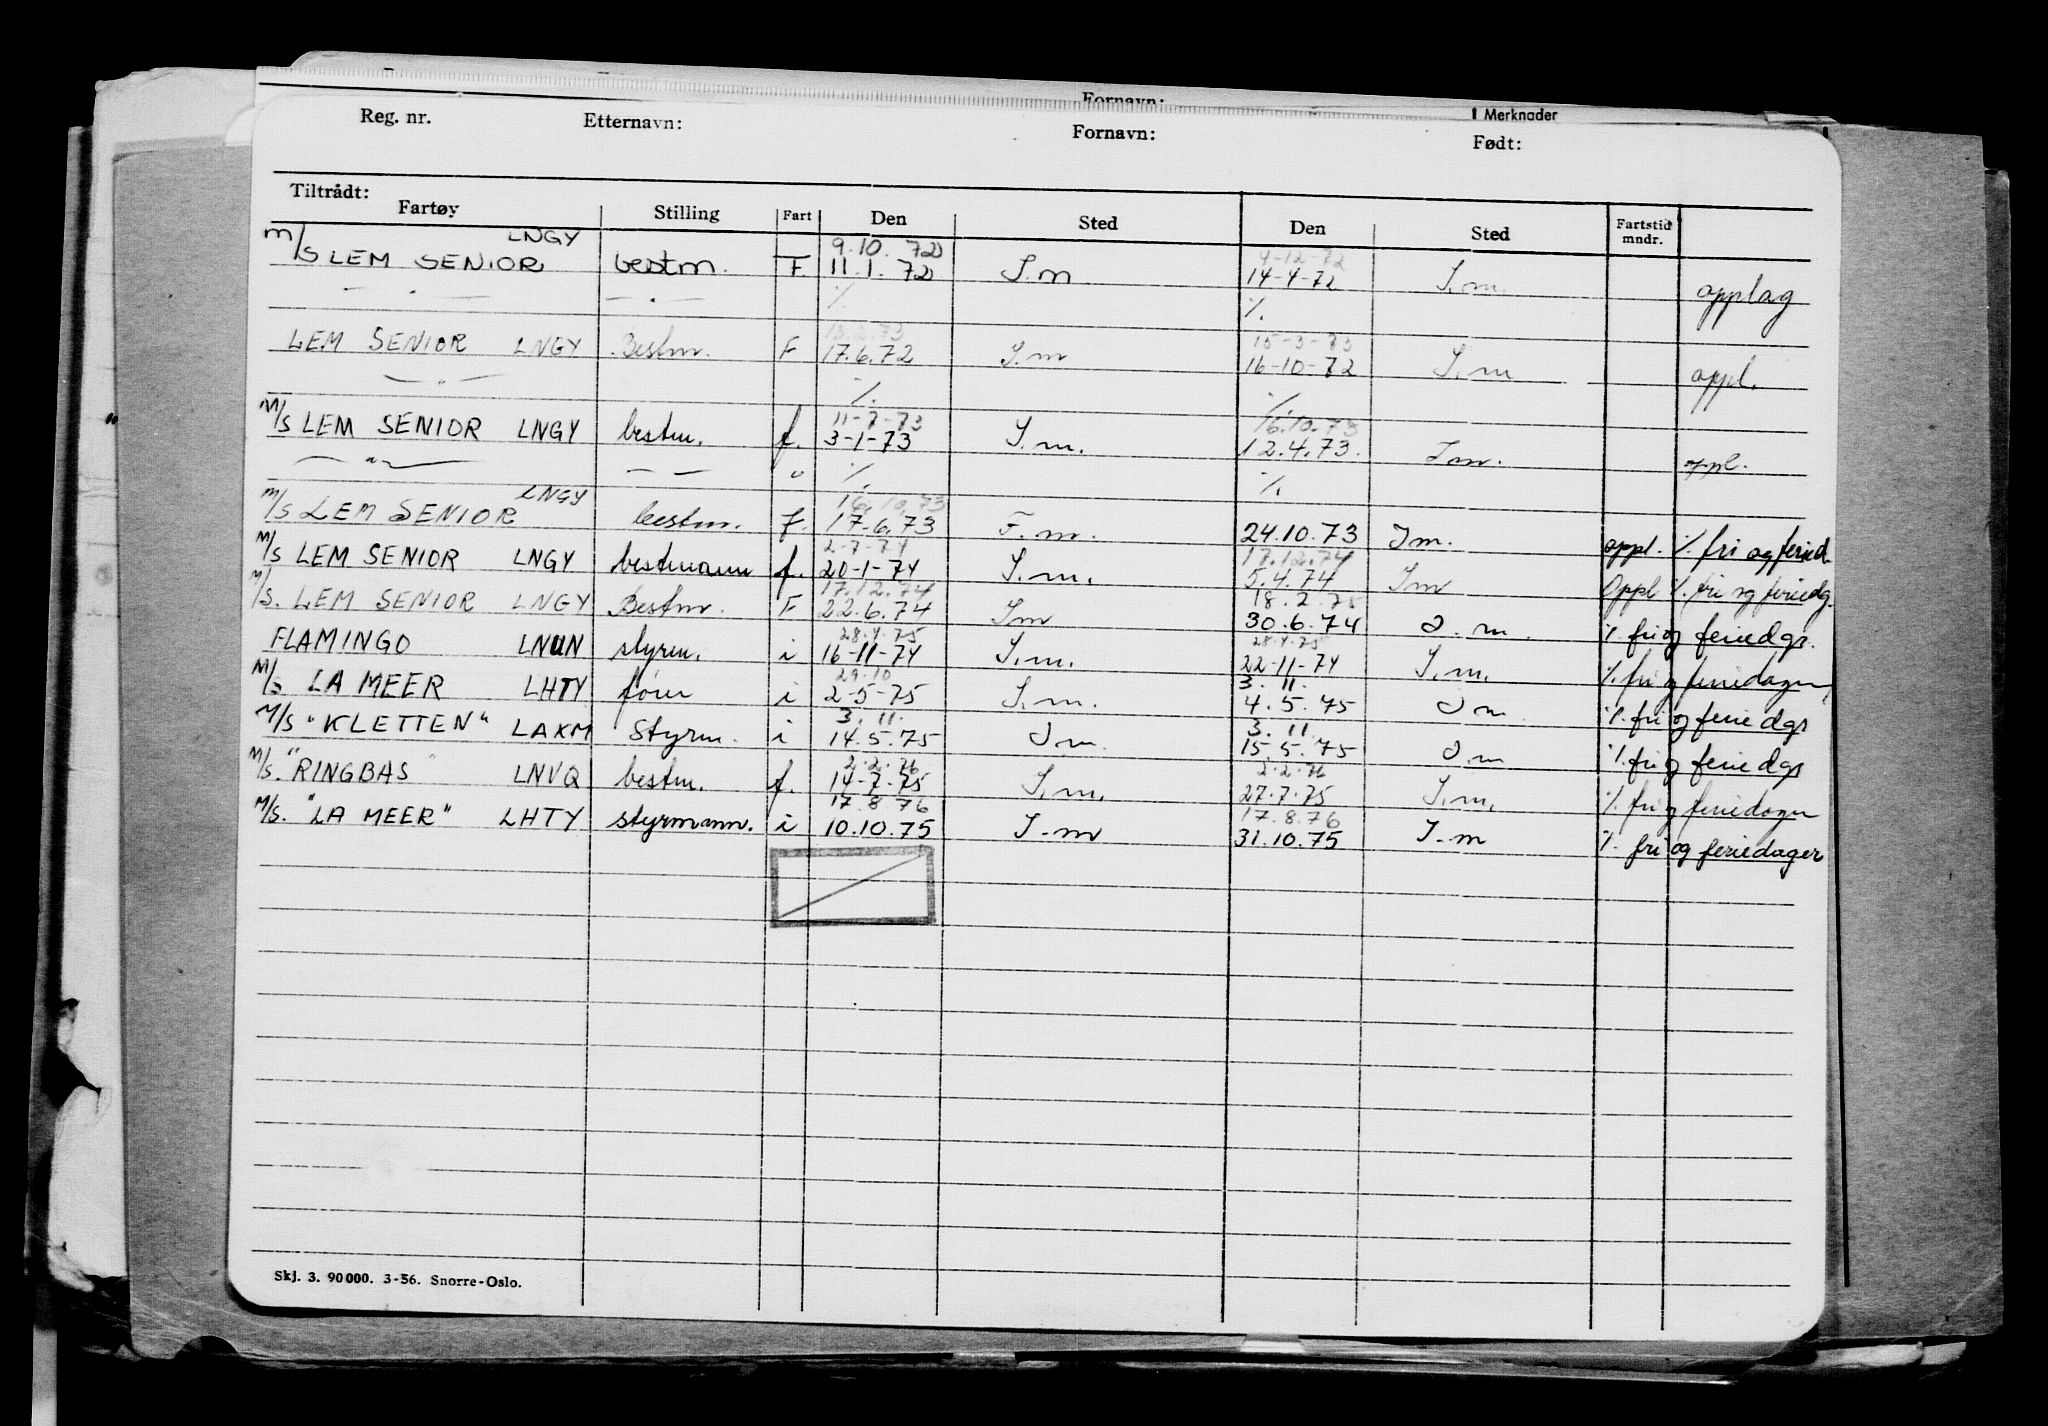 Fornavn:
Merknader
Reg. nr. Etternavn: Fornavn: Født:
Tiltrådt:
Fartøy Stilling Fart Den Sted Den Sted Fartstid mndr.
LNGY 9.10.72 4-12-72
M/S LEM SENIOR bestm. F. 11.1.72 I.m 14-4-72 I.m. opplag
— " — — " — % %.
13.2.73 15-3-73
LEM SENIOR LNGY Bestm. F 17.6.72 I.m 16-10-72 I.m oppl.
— " — %. %.
11-7-73 16.10.73
M/S LEM SENIOR LNGY bestm. f. 3-1-73 I.m. 12.4.73. Im. oppl.
— " — — — " %. %.
LNGY 16.10.73
M/S LEM SENIOR bestm. f. 17.6.73 F.m. 24.10.73 Im. oppl. %. fri og feried.
2-7-74 17.12.74
M/S LEM SENIOR LNGY bestmann f. 20-1-74 I.m. 5.4.74 Im Oppl %. fri og feriedg.
17.12.74 18.2.75
M/S. LEM SENIOR LNGY Bestm. F 22.6.74 Im 30.6.74 I.m. %. fri og feriedgr.
28.4.75 28.4.75
FLAMINGO LNUN styrm. i 16-11-74 I.m. 22-11-74 I.m. %. fri og feriedager
29.10 3.11.
M/S LA MEER LHTY fører i 2-5-75 I.m. 4.5.75 Im %. fri og feriedgr
3.11. 3.11.
M/S "KLETTEN" LAXM Styrm. i 14.5.75 Im. 15.5.75 Im %. fri og feriedgr
2.2.76 2.2.76
M/S. "RINGBAS" LNVQ bestm. f. 14-7-75 I.m. 27.7.75 I.m. %. fri og feriedager
17.8.76 17.8.76
M/S. "LA MEER" LHTY styrmann. i 10.10.75 I.m 31.10.75 I.m %. fri og feriedager
Skj. 3. 90000. 3-56. Snorre-Oslo.